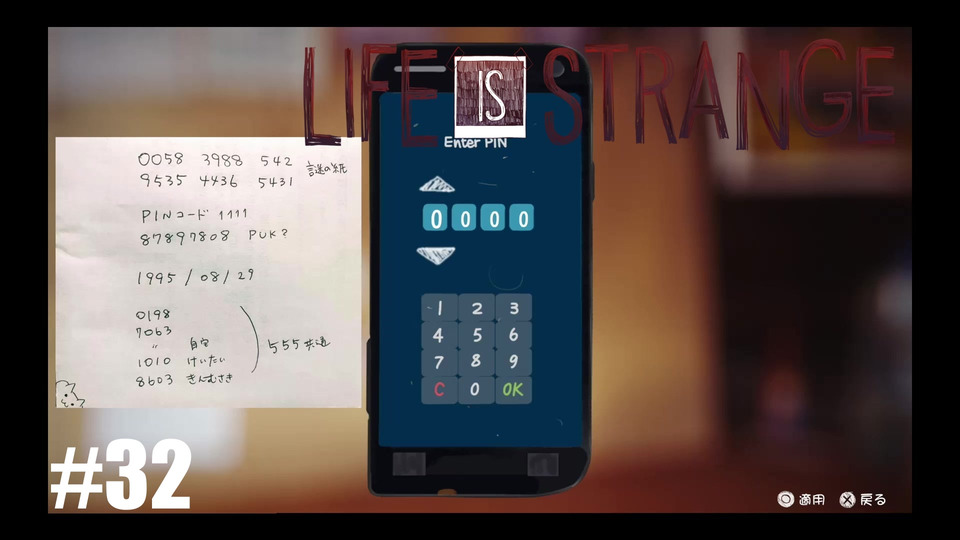 LIFE IS STRANGE
0058 3988 542
9535 4436 5431
謎の紙
PINコード 1111
87897808 PUK?
1995/08/29
0198
7063
〃 自宅
1010 けいたい
8603 きんむさき
555共通
Enter PIN
0 0 0 0
1 2 3
4 5 6
7 8 9
C 0 OK
#32
適用 戻る